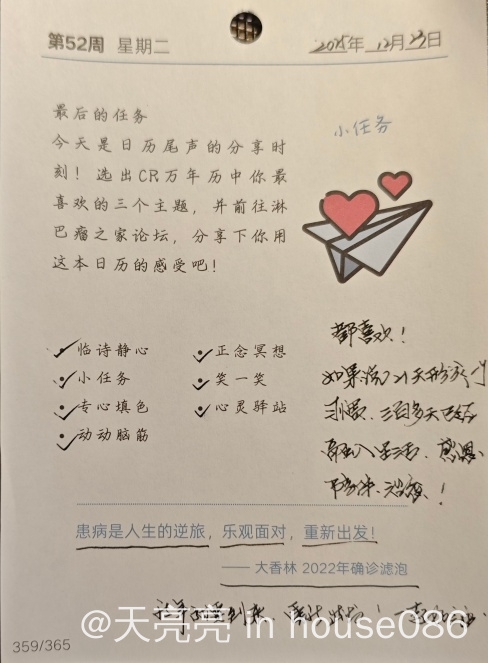 第52周 星期二
2025年12月23日
小任务
最后的任务
今天是日历尾声的分享时
刻！选出CR万年历中你最
喜欢的三个主题，并前往淋
巴瘤之家论坛，分享下你用
这本日历的感受吧！
临诗静心
小任务
专心填色
动动脑筋
正念冥想
笑一笑
心灵驿站
都喜欢！
如果说21天形成个
习惯、三百多天已经
融入生活、感恩、
患病是人生的逆旅，乐观面对，重新出发！
—— 大香林 2022年确诊滤泡
359/365
@天亮亮 in house086